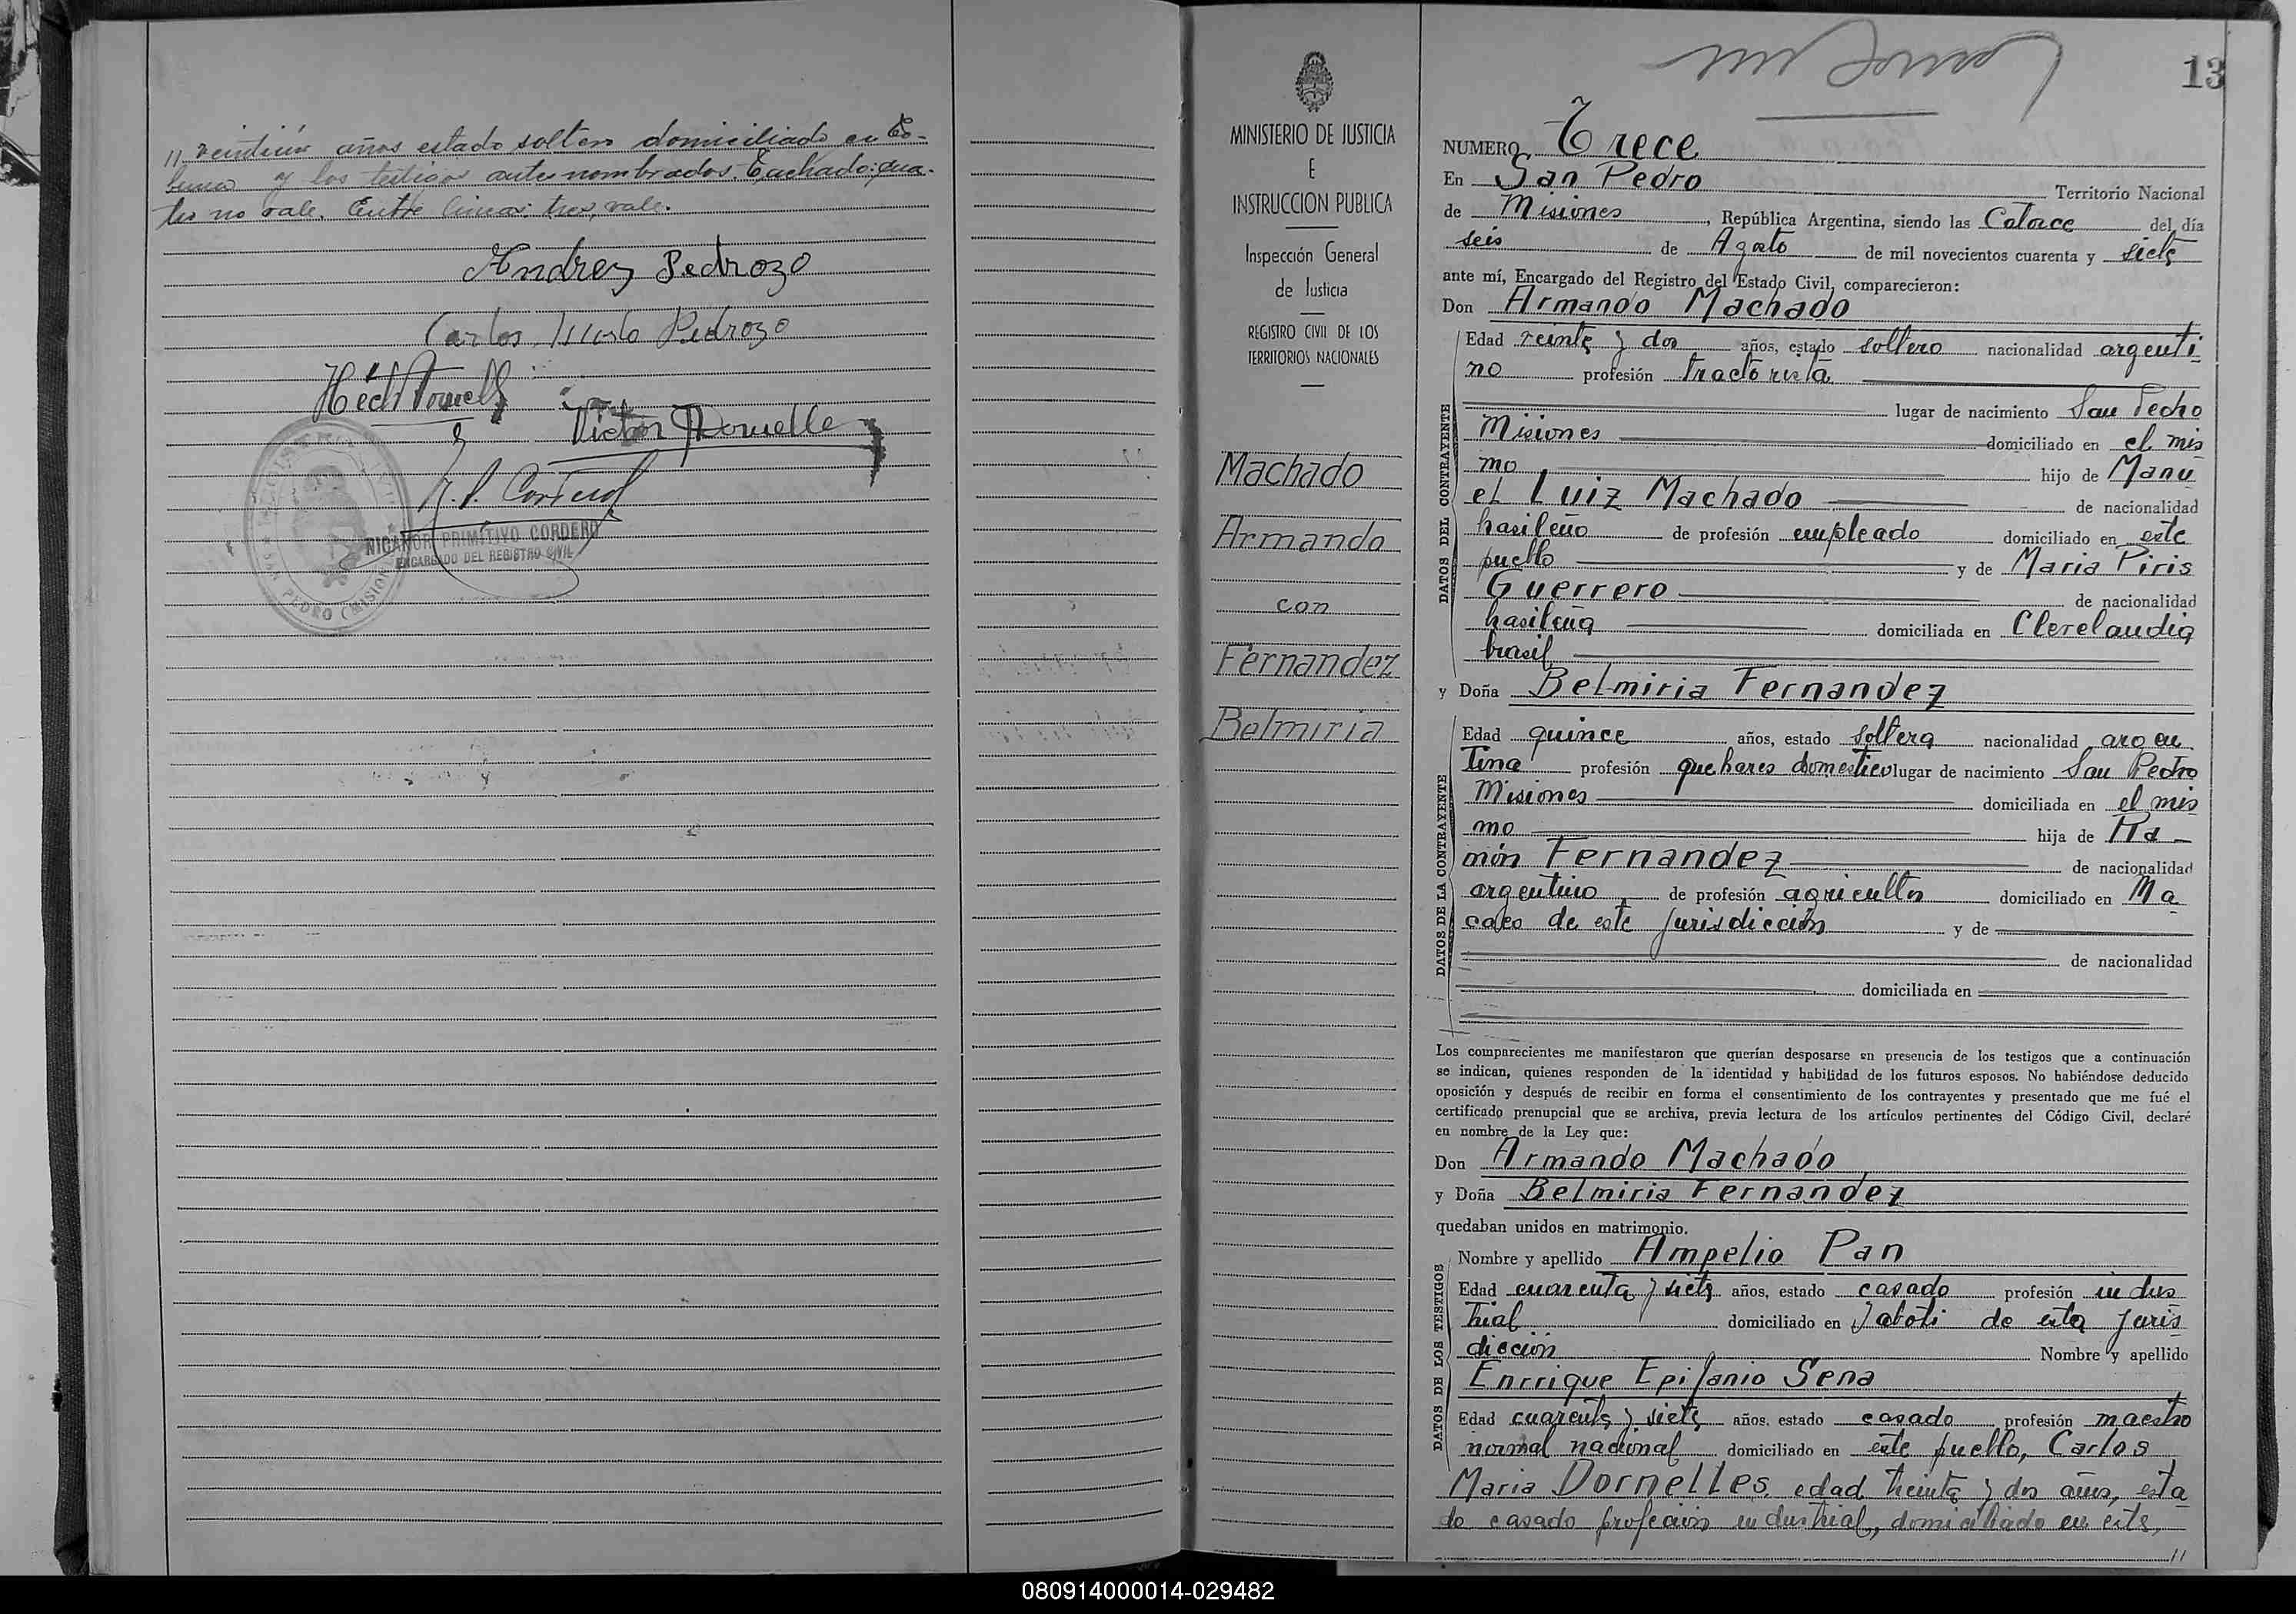 // veintiún años estado soltero domiciliado en Co-
lonia y los testigos antes nombrados. Enchado: cua-
tro no vale. Entre lineas: tres, vale.
Andres Pedrozo
Carlos Pedrozo
Victor Dornelle
NICANOR PRIMITIVO CORDERO
ENCARGADO DEL REGISTRO CIVIL
PEDRO (MISIONES
MINISTERIO DE JUSTICIA
E
INSTRUCCION PUBLICA
Inspección General
de Justicia
REGISTRO CIVIL DE LOS
TERRITORIOS NACIONALES
Machado
Armando
con
Fernandez
Belmiria
13
NUMERO Trece
En San Pedro Territorio Nacional
de Misiones, República Argentina, siendo las Catorce del día
seis de Agosto de mil novecientos cuarenta y siete
ante mí, Encargado del Registro del Estado Civil, comparecieron:
Don Armando Machado
DATOS DEL CONTRAYENTE
Edad veinte y dos años, estado soltero nacionalidad argenti
no profesión tractorista
lugar de nacimiento San Pedro
Misiones domiciliado en el mis
mo hijo de Manu
el Luiz Machado de nacionalidad
brasileño de profesión empleado domiciliado en este
pueblo y de Maria Piris
Guerrero de nacionalidad
brasileña domiciliada en Clevelandia
brasil
y Doña Belmiria Fernandez
DATOS DE LA CONTRAYENTE
Edad quince años, estado soltera nacionalidad argen
tina profesión quehares domestico lugar de nacimiento San Pedro
Misiones domiciliada en el mis
mo hija de Ra-
món Fernandez de nacionalidad
argentino de profesión agricultor domiciliado en Ma
caco de este jurisdicción y de
de nacionalidad
domiciliada en
Los comparecientes me manifestaron que querían desposarse en presencia de los testigos que a continuación
se indican, quienes responden de la identidad y habilidad de los futuros esposos. No habiéndose deducido
oposición y después de recibir en forma el consentimiento de los contrayentes y presentado que me fué el
certificado prenupcial que se archiva, previa lectura de los artículos pertinentes del Código Civil, declaré
en nombre de la Ley que:
Don Armando Machado
y Doña Belmiria Fernandez
quedaban unidos en matrimonio.
DATOS DE LOS TESTIGOS
Nombre y apellido Ampelio Pan
Edad cuarenta y siete años, estado casado profesión indus
trial domiciliado en Yabotí de esta juris
dicción Nombre y apellido
Enrrique Epifanio Sena
Edad cuarenta y siete años, estado casado profesión maestro
normal nacional domiciliado en este pueblo, Carlos
Maria Dornelles, edad treinta y dos años, esta
do casado profesión industrial, domiciliado en este,
//
080914000014-029482